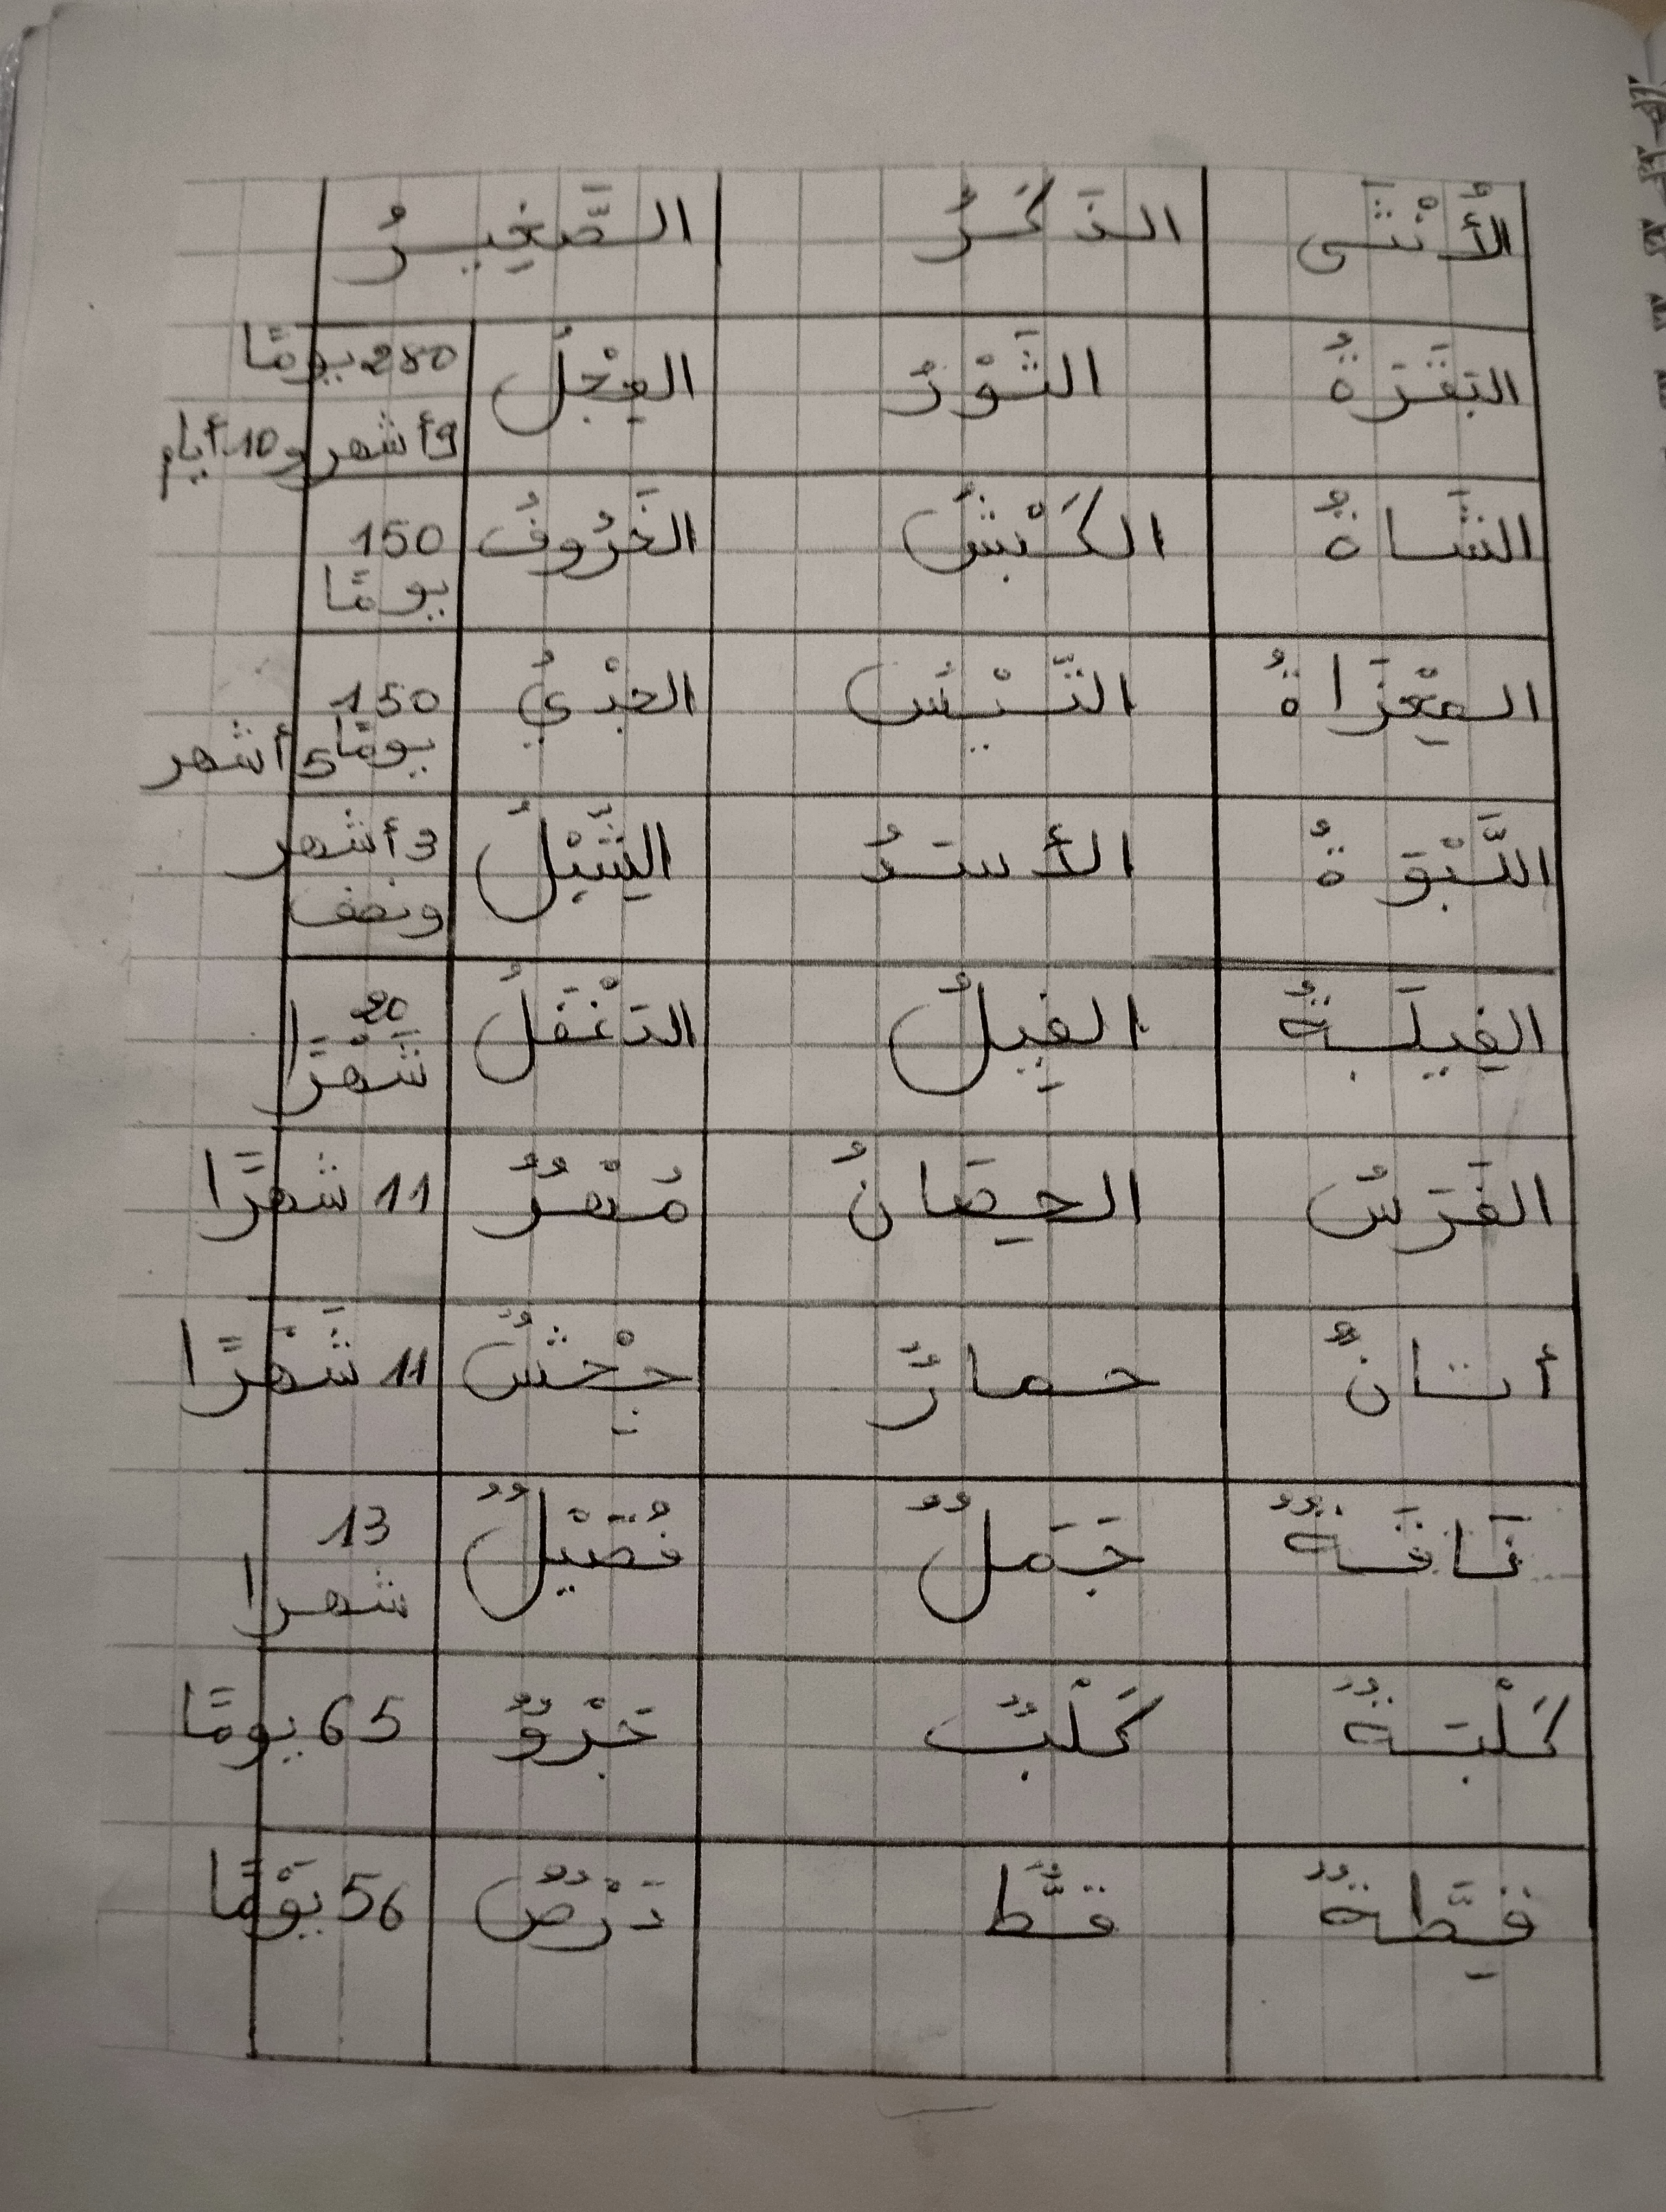 الأُنْثَى الذَكَرُ الصَّغِيرُ
البَقَرَةُ الثَّوْرُ العِجْلُ 280 يومًا
9 أشهر و 10 أيام
الشَّاةُ الكَبْشُ الخَرُوفُ 150
يومًا
المِعْزَاةُ التَّيْسُ الجَدْيُ 150
يومًا 5 أشهر
اللَّبْوَةُ الأَسَدُ الشِّبْلُ 3 أشهر
ونصف
الفِيلَةُ الفِيلُ الدَغْفَلُ 20
شَهْرًا
الفَرَسُ الحِصَانُ مُهْرٌ 11 شهرًا
أتانٌ حمارٌ جِحْشٌ 11 شَهْرًا
نَاقَةٌ جَمَلٌ فُصَيْلٌ 13
شهرا
كَلْبَةٌ كَلْبٌ جَرْوٌ 65 يومًا
قِطَّةٌ قطٌّ دَرْصٌ 56 يَوْمًا